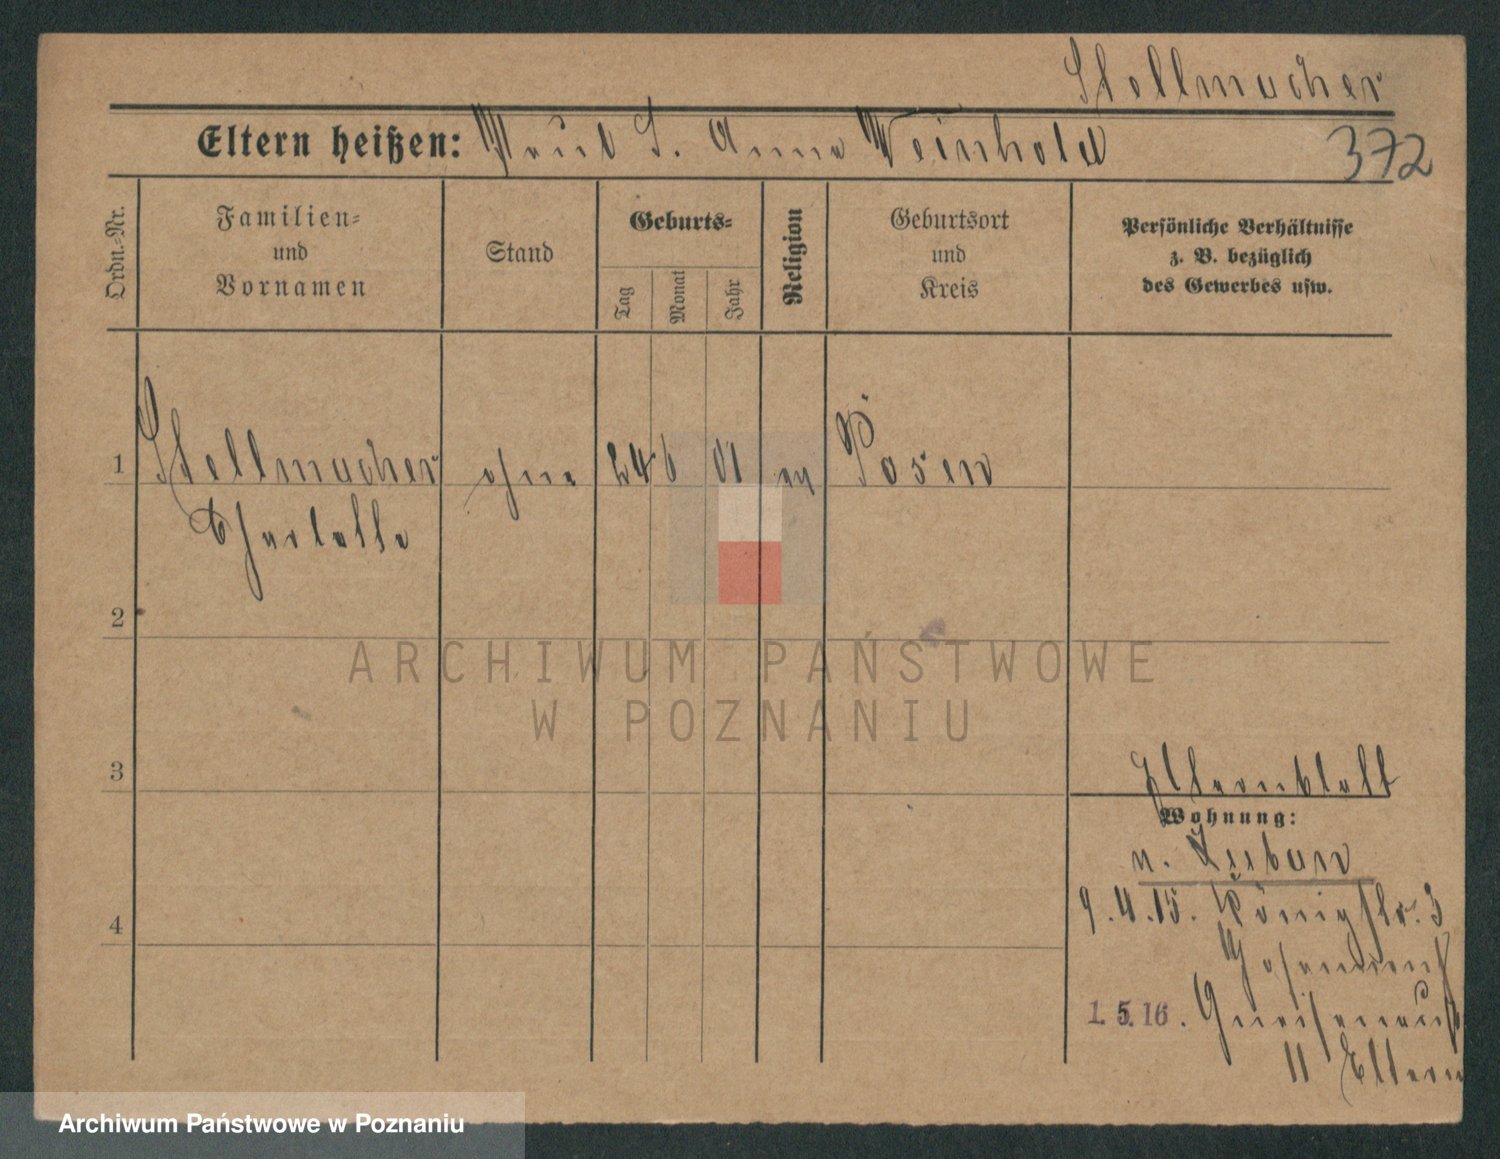 Stellmacher
Eltern heißen: Paul S. Anna Weinhold
372
Ordn.=Nr.
Familien=
und
Vornamen
Stand
Geburts=
Tag
Monat
Jahr
Religion
Geburtsort
und
Kreis
Persönliche Verhältnisse
z. B. bezüglich
des Gewerbes usw.
1 Stellmacher ohne 24 6 01 ev Posen
Charlotte
2
ARCHIWUM PAŃSTWOWE
W POZNANIU
3
Elternblatt
Wohnung:
n. Luban
9.4.15. Königstr. 3
4
1. 5. 16. Gneisenaustr
11 Eltern
Archiwum Państwowe w Poznaniu